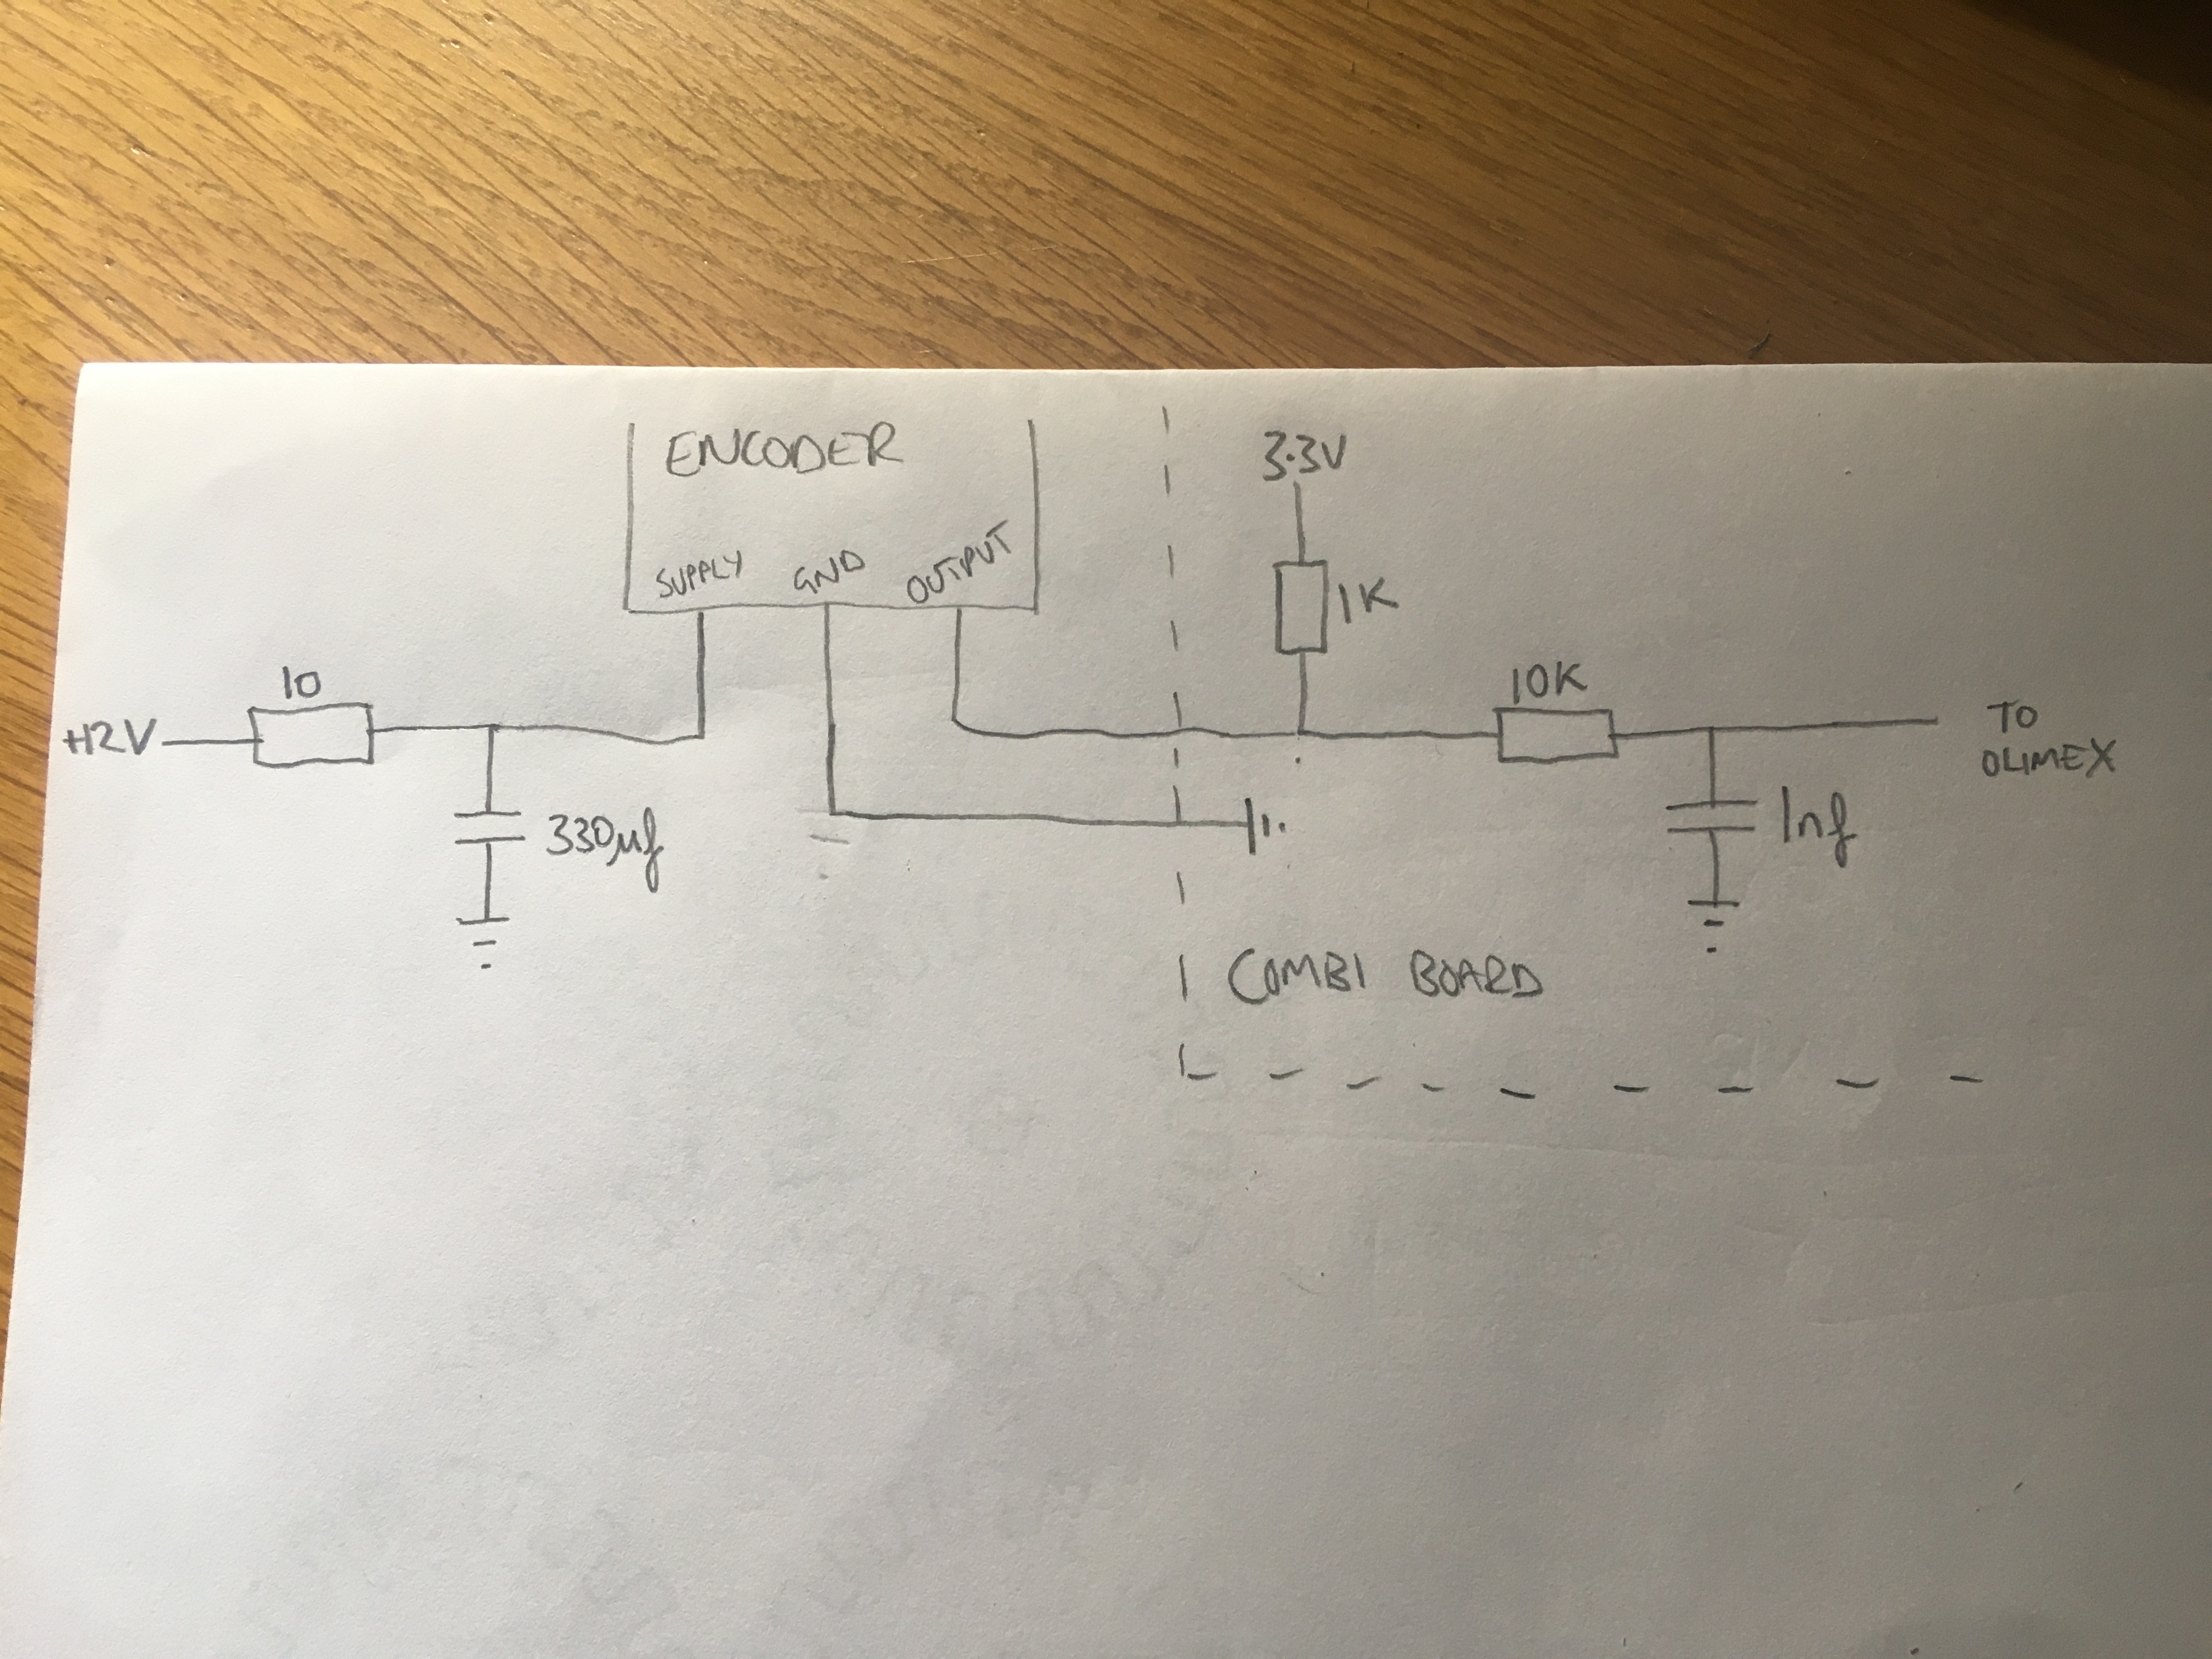 ENCODER
SUPPLY GND OUTPUT
3.3V
1K
10
+12V
330µf
10K
TO
OLIMEX
1nf
COMBI BOARD